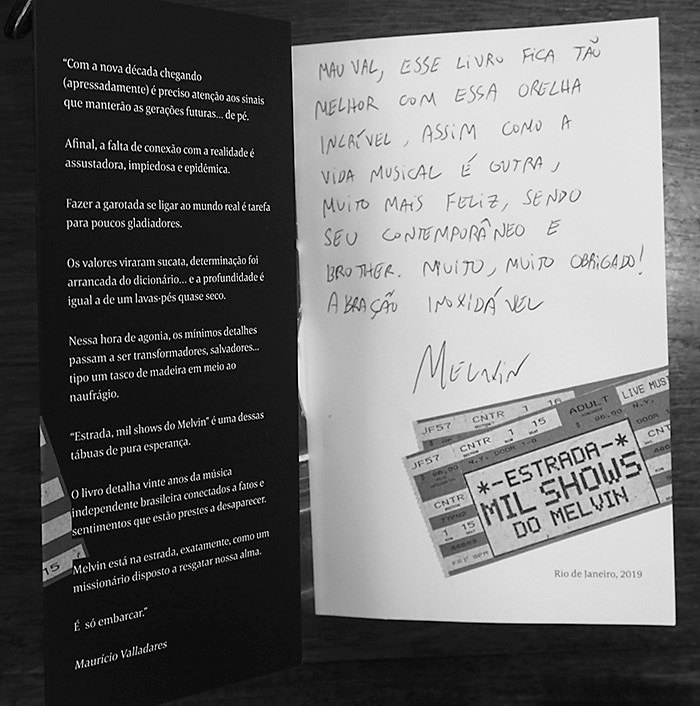 “Com a nova década chegando
(apressadamente) é preciso atenção aos sinais
que manterão as gerações futuras... de pé.
Afinal, a falta de conexão com a realidade é
assustadora, impiedosa e epidêmica.
Fazer a garotada se ligar ao mundo real é tarefa
para poucos gladiadores.
Os valores viraram sucata, determinação foi
arrancada do dicionário... e a profundidade é
igual a de um lavas-pés quase seco.
Nessa hora de agonia, os mínimos detalhes
passam a ser transformadores, salvadores...
tipo um tasco de madeira em meio ao
naufrágio.
“Estrada, mil shows do Melvin” é uma dessas
tábuas de pura esperança.
O livro detalha vinte anos da música
independente brasileira conectados a fatos e
sentimentos que estão prestes a desaparecer.
Melvin está na estrada, exatamente, como um
missionário disposto a resgatar nossa alma.
É só embarcar.”
Maurício Valladares
15
MAU VAL, ESSE LIVRO FICA TÃO
MELHOR COM ESSA ORELHA
INCRÍVEL, ASSIM COMO A
VIDA MUSICAL É OUTRA,
MUITO MAIS FELIZ, SENDO
SEU CONTEMPORÂNEO E
BROTHER. MUITO, MUITO OBRIGADO!
ABRAÇÃO INOXIDÁVEL
MELVIN
JF57 CNTR 1 16 ADULT LIVE MUS
JF57 CNTR 1 15
N.Y. DOOR 1-8
CNTR
1 15
*-ESTRADA-*
MIL SHOWS
DO MELVIN
CNT
1 15
Rio de Janeiro, 2019